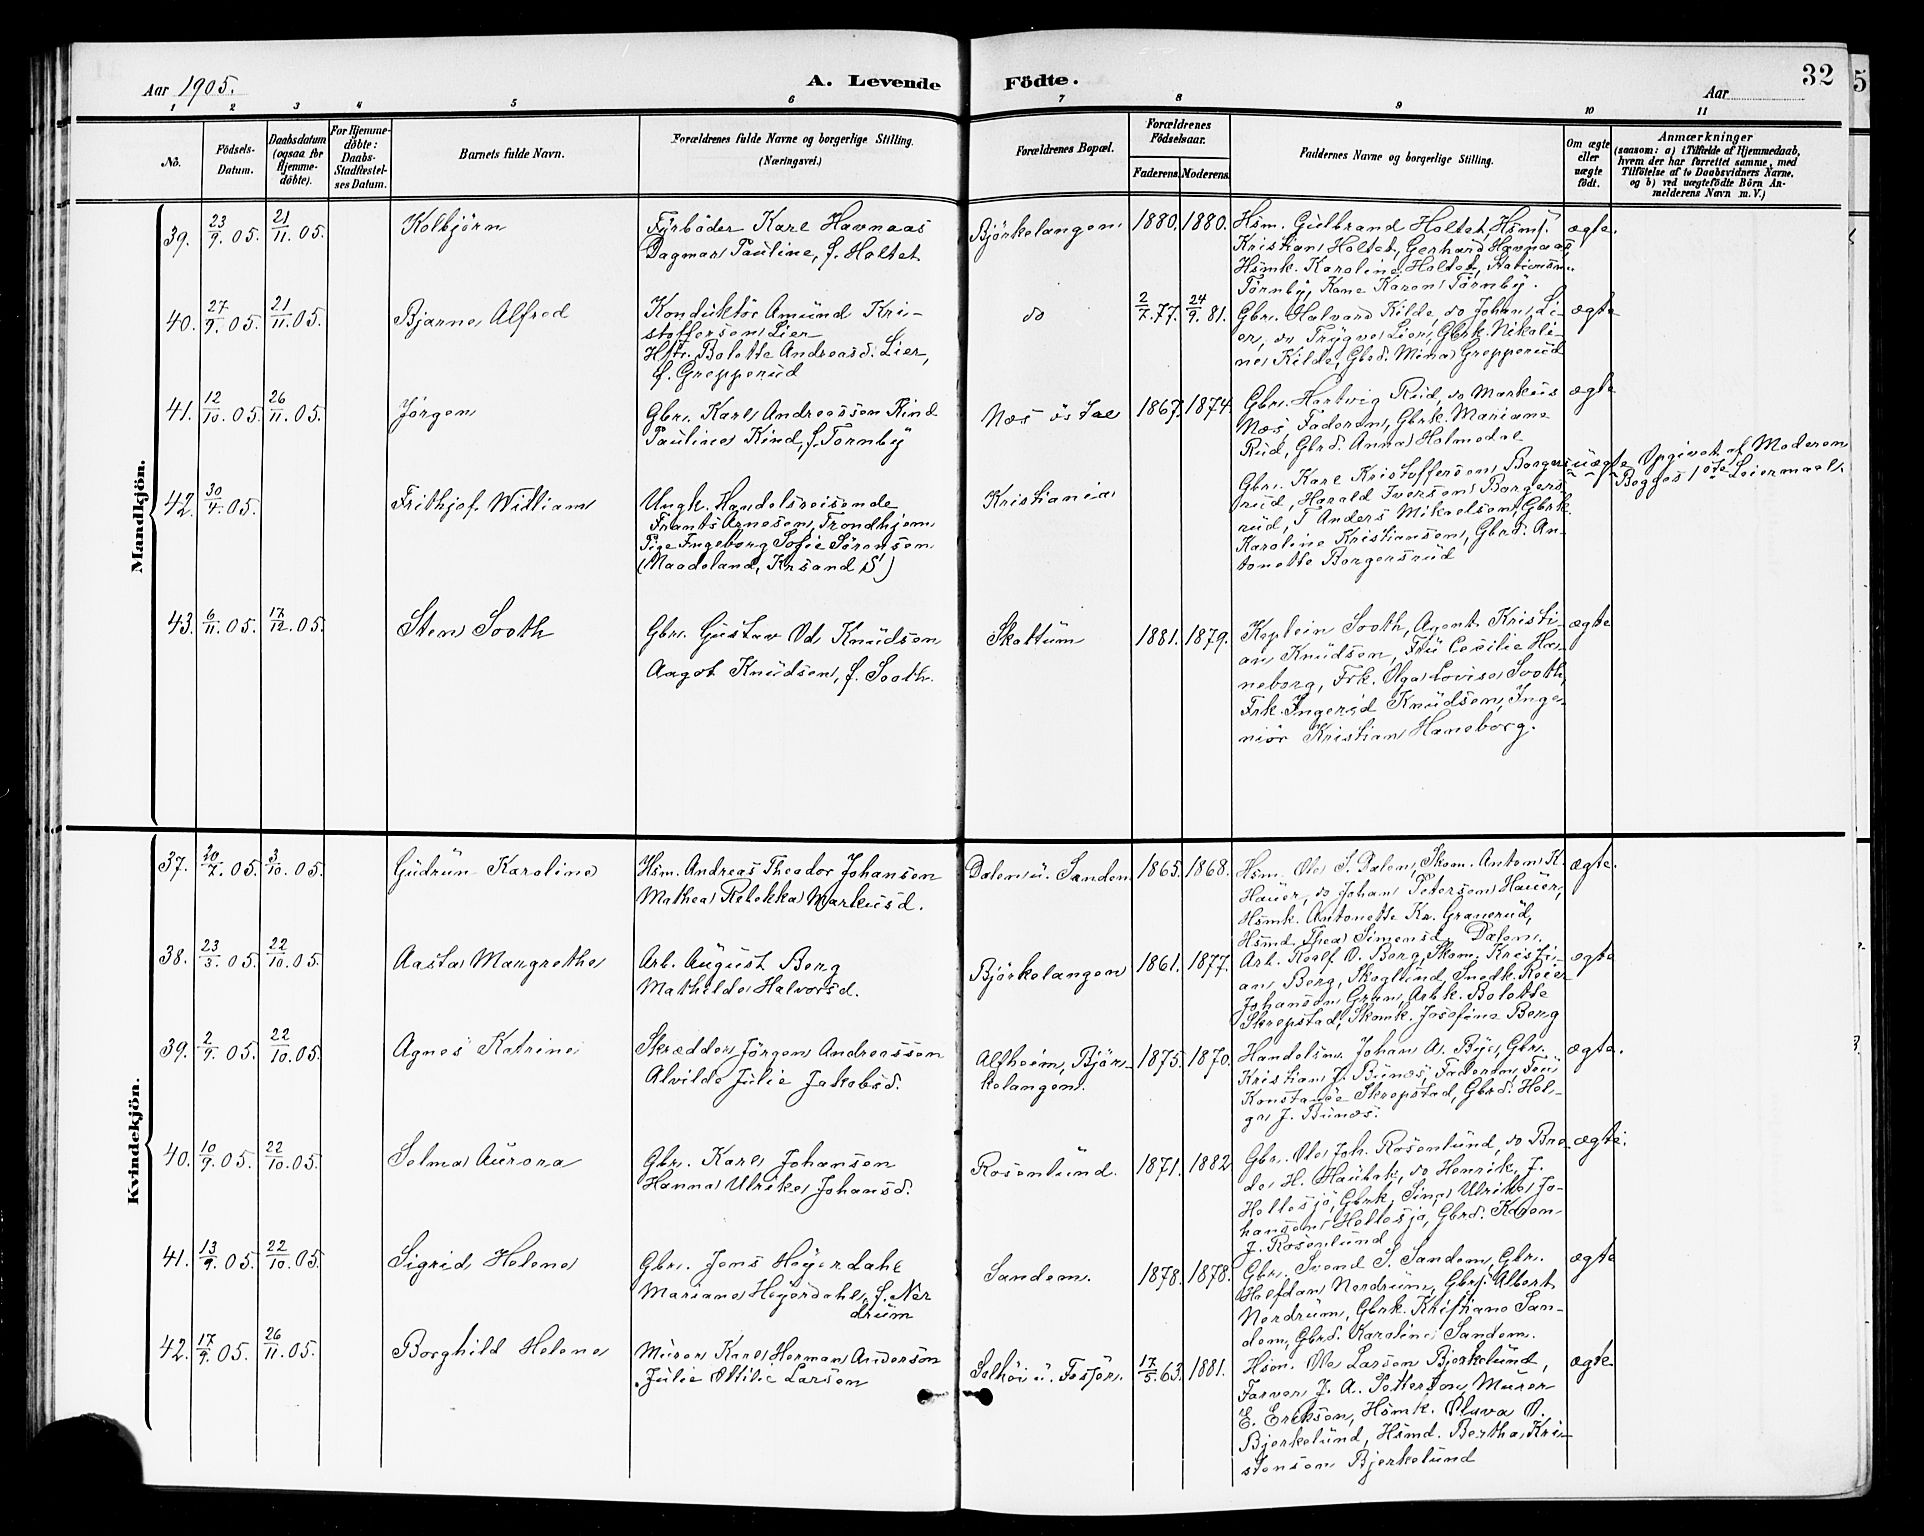 Aar 1905.
A. Levende Födte.
Aar
32
1 2 3 4 5 6 7 8 9 10 11
No.
Födsels-Datum.
Daabsdatum (ogsaa for Hjemme-döbte).
For Hjemme-döbte: Daabs-Stadfæstel-ses Datum.
Barnets fulde Navn.
Forældrenes fulde Navne og borgerlige Stilling. (Næringsvei.)
Forældrenes Bopæl.
Forældrenes Födselsaar.
Faderens. Moderens.
Faddernes Navne og borgerlige Stilling.
Om ægte eller uægte födt.
Anmærkninger
(saasom: a) i Tilfælde af Hjemmedaab,
hvem der har forrettet samme, med
Tilföielse af to Daabsvidners Navne.
og b) ved uægtefödte Börn An-
melderens Navn m. V.)
Mandkjön.
39. 23/9. 05. 21/11. 05.
Kolbjörn
Fyrböder Karl Havnaas
Dagmar Pauline, f. Holtet
Björkelangen
1880. 1880.
Hsm. Gulbrand Holtet, Hsmf.
Kristian Holtet, Gerhard Havnaas,
Hsmk. Karoline Holtet, Stationsm.
Törnby, Kone Karen Törnby.
ægte.
40. 27/9. 05. 21/11. 05.
Bjarne Alfred
Konduktör Amund Kri-
stoffersen Lier
Hstr. Bolette Andreasd. Lier,
f. Grepperud
do
2/7. 77. 24/9. 81.
Gbr. Halvard Kilde, do Johan Li-
er, do Trygve Lier, Gbrk. Nikoli-
ne Kilde, Gbrd. Mina Grepperud
ægte
41. 12/10. 05. 26/11. 05.
Jörgen
Gbr. Karl Andreassen Kind
Pauline Kind, f. Tornby
Næs ös Iae
1867. 1874.
Gbr. Hartvig Rud, do Markus
Næs, Faderen, Gbrk. Mariane
Rud, Gbrd. Anna Holmedal
ægte
42. 30/4. 05.
Frithjof William
Ungk. Handelsreisende
Frants Arnesen, Trondhjem
Pige Ingeborg Sofie Sörensen
(Maadeland, Krsand S)
Kristiania
Gbr. Karl Kristoffersen Borgers-
rud, Harald Iversen Borgers-
rud, T Anders Mikaelsen, Gbrk.
Karoline Kristiansen, Gbrd. An-
tonette Borgersrud
uægte
Opgivet af Moderen
Begges 1ste Leiermaal.
43. 6/11. 05. 17/12. 05.
Sten Sooth
Gbr. Gustav Od Knudsen
Aagot Knudsen, f. Sooth.
Skattum
1881. 1879.
Kaptein Sooth, Agent Kristi-
an Knudsen, Fru Cecilie Ha-
neborg, Frk. Olga Lovise Sooth,
Frk. Ingerid Knudsen, Inge-
niör Kristian Haneborg.
ægte
Kvindekjön.
37. 20/7. 05. 3/10. 05.
Gudrun Karoline
Hsm. Andreas Theodor Johansen
Mathea Rebekka Markusd.
Dalen u. Sanden
1865. 1868.
Hsm. Ole S. Dalen, Skom. Anton K.
Hauer, do Johan Petersen Hauer,
Hsmk. Antonette Kr. Granerud,
Hsmd. Thea Simensd. Dalen.
ægte.
38. 23/3. 05. 22/10. 05.
Aasta Margrethe
Arb. August Berg
Mathilde Halvorsd.
Björkelangen
1861. 1877.
Arb. Roolf O. Berg, Skom. Kristi-
an Berg, Skoglund, Snedk. Reier
Johansen Gran, Arbk. Bolette
Skrepstad, Skomk. Josefine Berg
ægte
39. 2/9. 05. 22/10. 05.
Agnes Katrine
Skrædder Jörgen Andreassen
Alvilde Julie Jakobsd.
Alfheim, Björ-
kelangen.
1875. 1870.
Handelsm. Johan A. Bye, Gbr.
Kristian J. Bunæs, Faderen, Fru
Konstanse Skrepstad, Gbrd. Hel-
ga J. Bunæs.
ægte.
40. 10/9. 05. 22/10. 05.
Selma Aurora
Gbr. Karl Johansen
Hanna Ulrike Johansd.
Rosenlund.
1871. 1882
Gbr. Ole Joh. Rosenlund, do Bre-
de H. Haubak, do Henrik J.
Holtesjö, Gbrk. Sina Ulrike Jo-
hansen Holtesjö, Gbrd. Karen
J. Rosenlund
ægte.
41. 13/9. 05. 22/10. 05.
Sigrid Helene
Gbr. Jens Heyerdahl
Mariane Heyerdahl, f. Ner
drum
Sandem.
1878. 1878.
Gbr. Svend S. Sandem, Gbr.
Halfdan Nerdrum, Gbrs. Albert
Nerdrum, Gbrk. Kristiane San-
dem, Gbrd. Karoline Sandem.
ægte
42. 17/9. 05. 26/11. 05.
Borghild Helene
Murer Karl Herman Anderson
Julie Ottilie Larsen
Solhöi u. Fosser.
17/5. 63. 1881.
Hsm. Ole Larsen Bjerkelund,
Farver J. A. Petterson, Murer
E. Erikson, Hsmk. Oluva O.
Bjerkelund, Hsmd. Bertha Kri-
stensen Bjerkelund
ægte